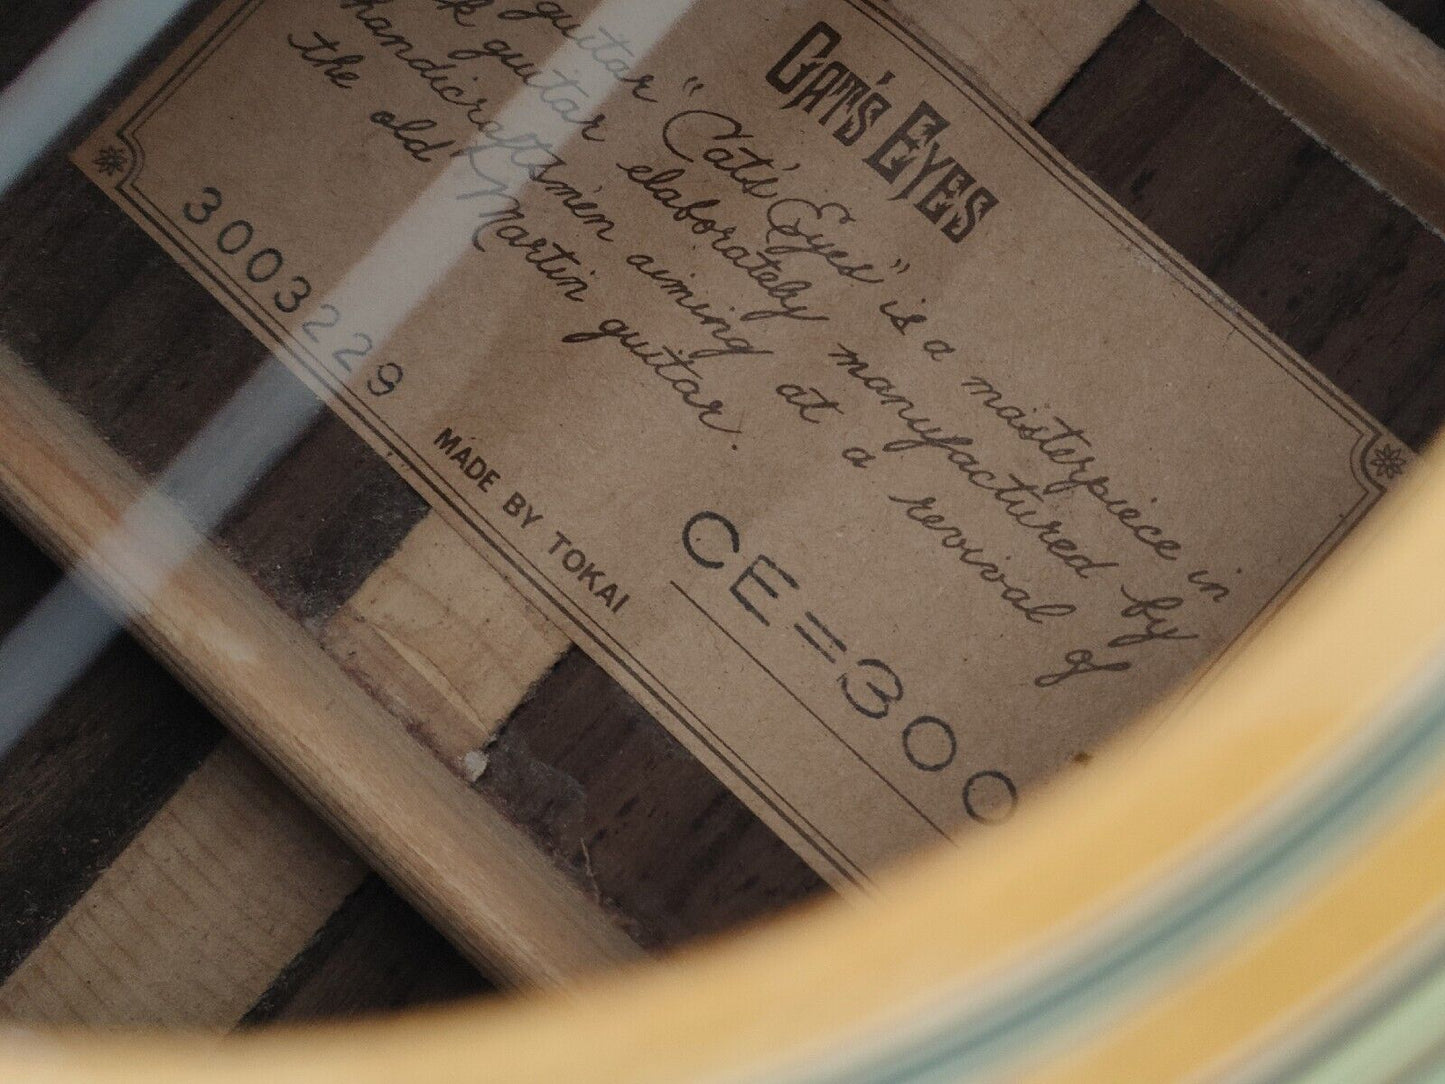 CAT'S EYES
guitar "Cat's Eyes" is a masterpiece in
guitar elaborately manufactured by
handicraftsmen aiming at a revival of
the old Martin guitar.
3003229
MADE BY TOKAI
CE=300